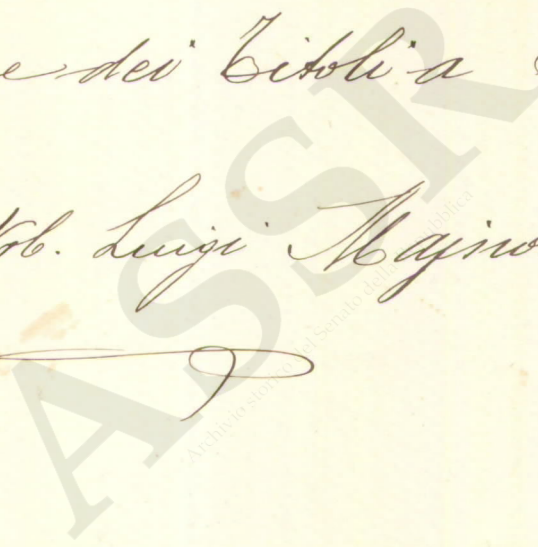 e dei Titoli a
Nob. Luigi Majno
ASSR
Archivio storico del Senato della Repubblica